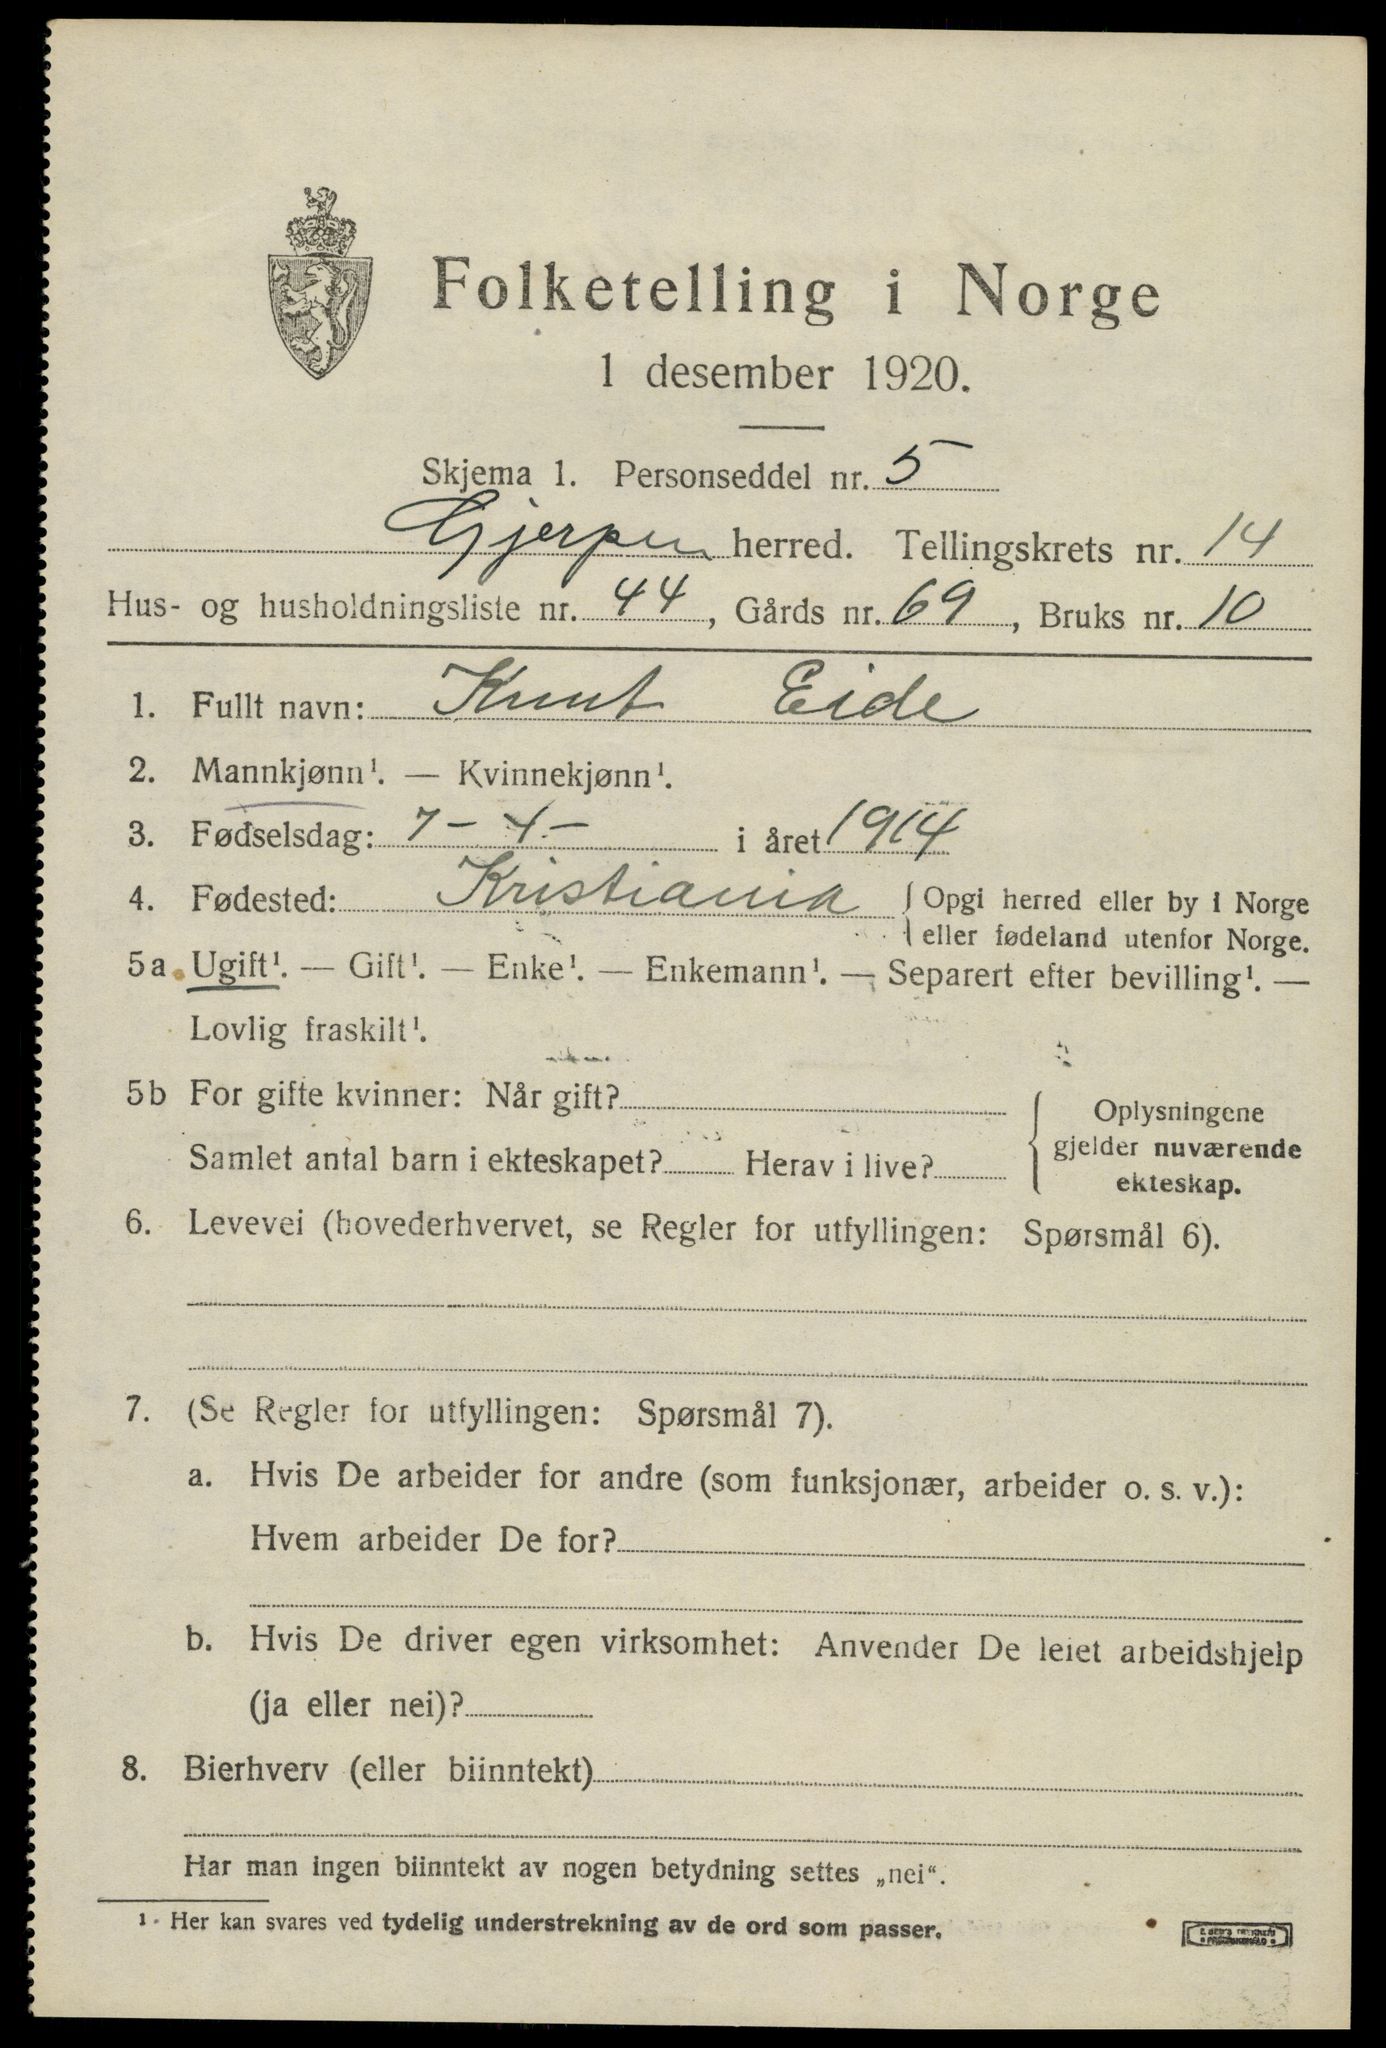 Folketelling i Norge
1 desember 1920.
Skjema 1. Personseddel nr. 5
Gjerpen herred. Tellingskrets nr. 14
Hus- og husholdningsliste nr. 44, Gårds nr. 69, Bruks nr. 10
1. Fullt navn: Knut Eide
2. Mannkjønn¹. — Kvinnekjønn¹.
3. Fødselsdag: 7 – 4 – i året 1914
4. Fødested: Kristiania { Opgi herred eller by i Norge
eller fødeland utenfor Norge.
5a Ugift¹. — Gift¹. — Enke¹. — Enkemann¹. — Separert efter bevilling¹. —
Lovlig fraskilt¹.
5b For gifte kvinner: Når gift?
Samlet antal barn i ekteskapet? Herav i live?
{ Oplysningene
gjelder nuværende
ekteskap.
6. Levevei (hovederhvervet, se Regler for utfyllingen: Spørsmål 6).
7. (Se Regler for utfyllingen: Spørsmål 7).
a. Hvis De arbeider for andre (som funksjonær, arbeider o. s. v.):
Hvem arbeider De for?
b. Hvis De driver egen virksomhet: Anvender De leiet arbeidshjelp
(ja eller nei)?
8. Bierhverv (eller biinntekt)
Har man ingen biinntekt av nogen betydning settes „nei“.
¹ Her kan svares ved tydelig understrekning av de ord som passer.